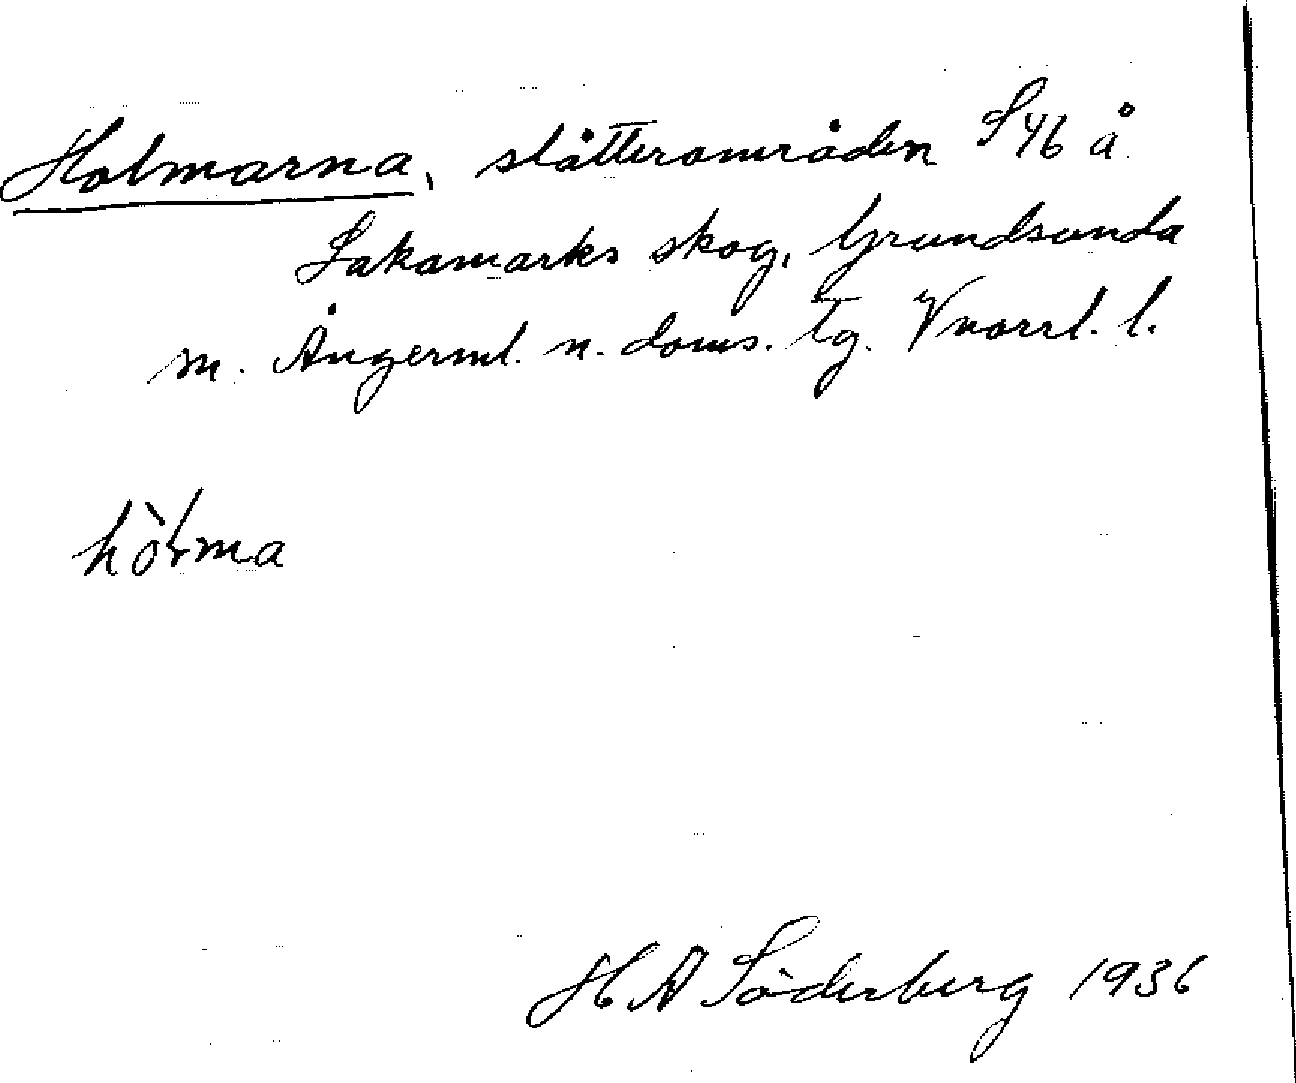 Holmarna, slåtterområden S 46 å
Lakamarks skog, Grundsunda
sn. Ångerml. n. doms. tg. Vnorrl. l.
hòlma
H A Söderberg 1936